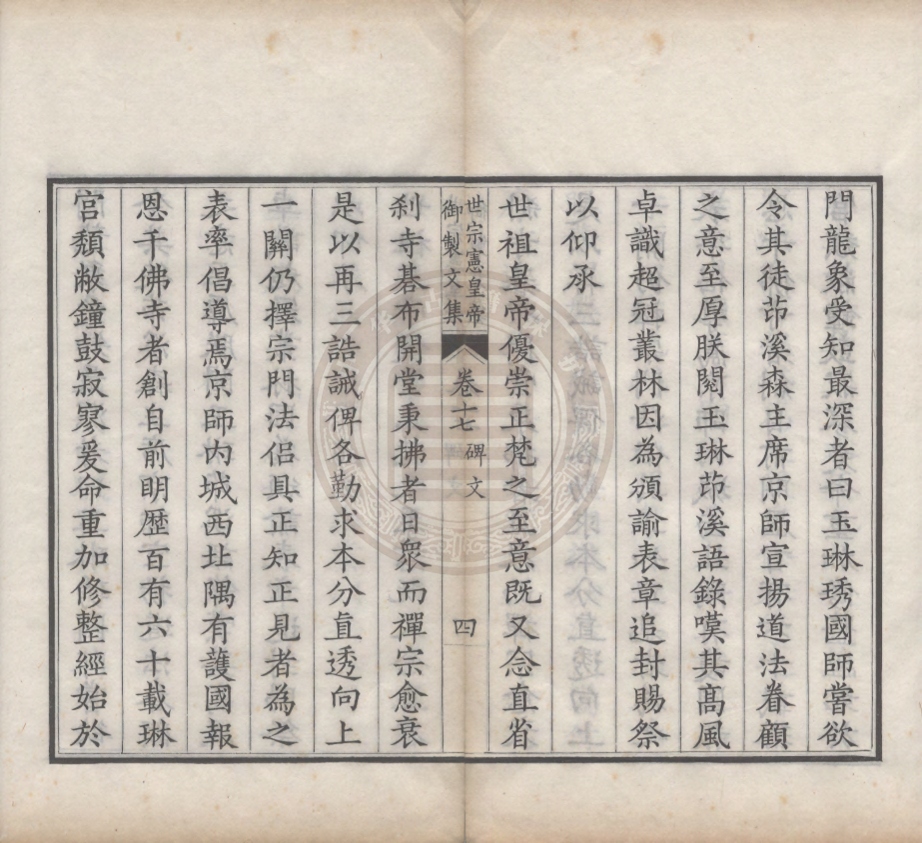 門龍象受知最深者曰玉琳琇國師嘗欲
令其徒茆溪森主席京師宣揚道法眷顧
之意至厚朕閱玉琳茆溪語錄嘆其高風
卓識超冠叢林因為頒諭表章追封賜祭
以仰承
世祖皇帝優崇正梵之至意既又念直省
世宗憲皇帝
御製文集
卷十七 碑文
四
刹寺碁布開堂秉拂者日衆而禪宗愈衰
是以再三誥誡俾各勤求本分直透向上
一關仍擇宗門法侶具正知正見者為之
表率倡導焉京師內城西北隅有護國報
恩千佛寺者創自前明歷百有六十載琳
宮頹敝鐘鼓寂寥爰命重加修整經始於